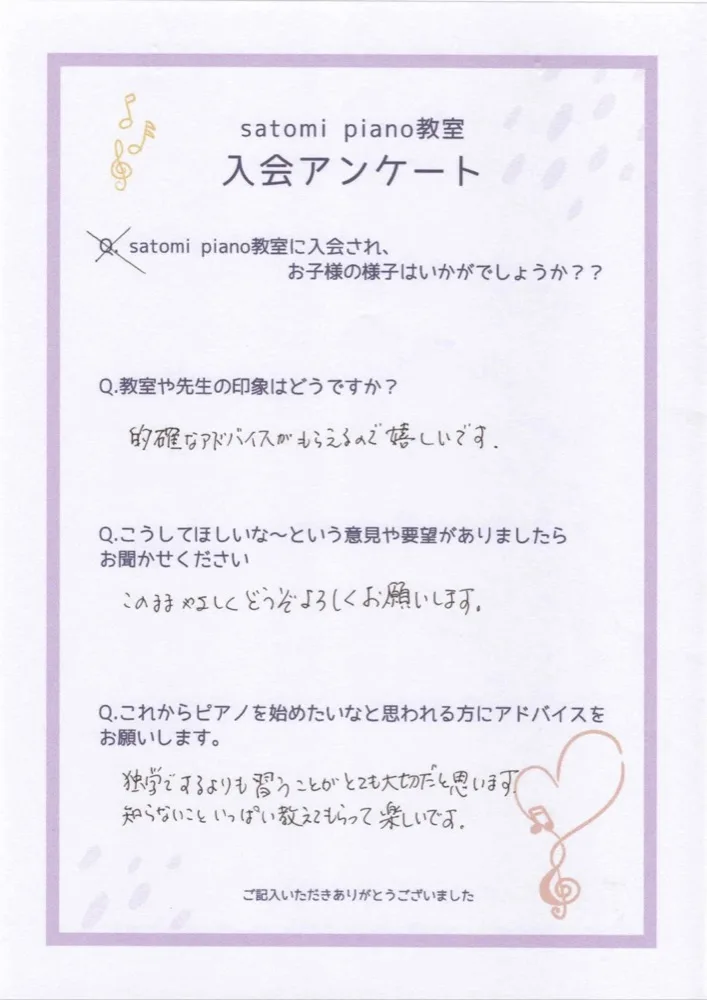 satomi piano教室
入会アンケート
Q. satomi piano教室に入会され、
お子様の様子はいかがでしょうか？？
Q.教室や先生の印象はどうですか？
的確なアドバイスがもらえるので嬉しいです.
Q.こうしてほしいな～という意見や要望がありましたら
お聞かせください
このままやさしくどうぞよろしくお願いします。
Q.これからピアノを始めたいなと思われる方にアドバイスを
お願いします。
独学でするよりも習うことがとても大切だと思います。
知らないこといっぱい教えてもらって楽しいです。
ご記入いただきありがとうございました